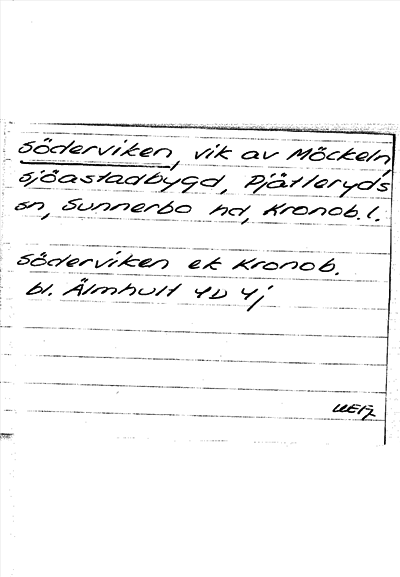 Söderviken, vik av Möckeln,
Sjöastadbygd, Pjätteryds
sn, Sunnerbo hd, Kronob. l.
Söderviken ek Kronob.
bl. Älmhult 4D 4j